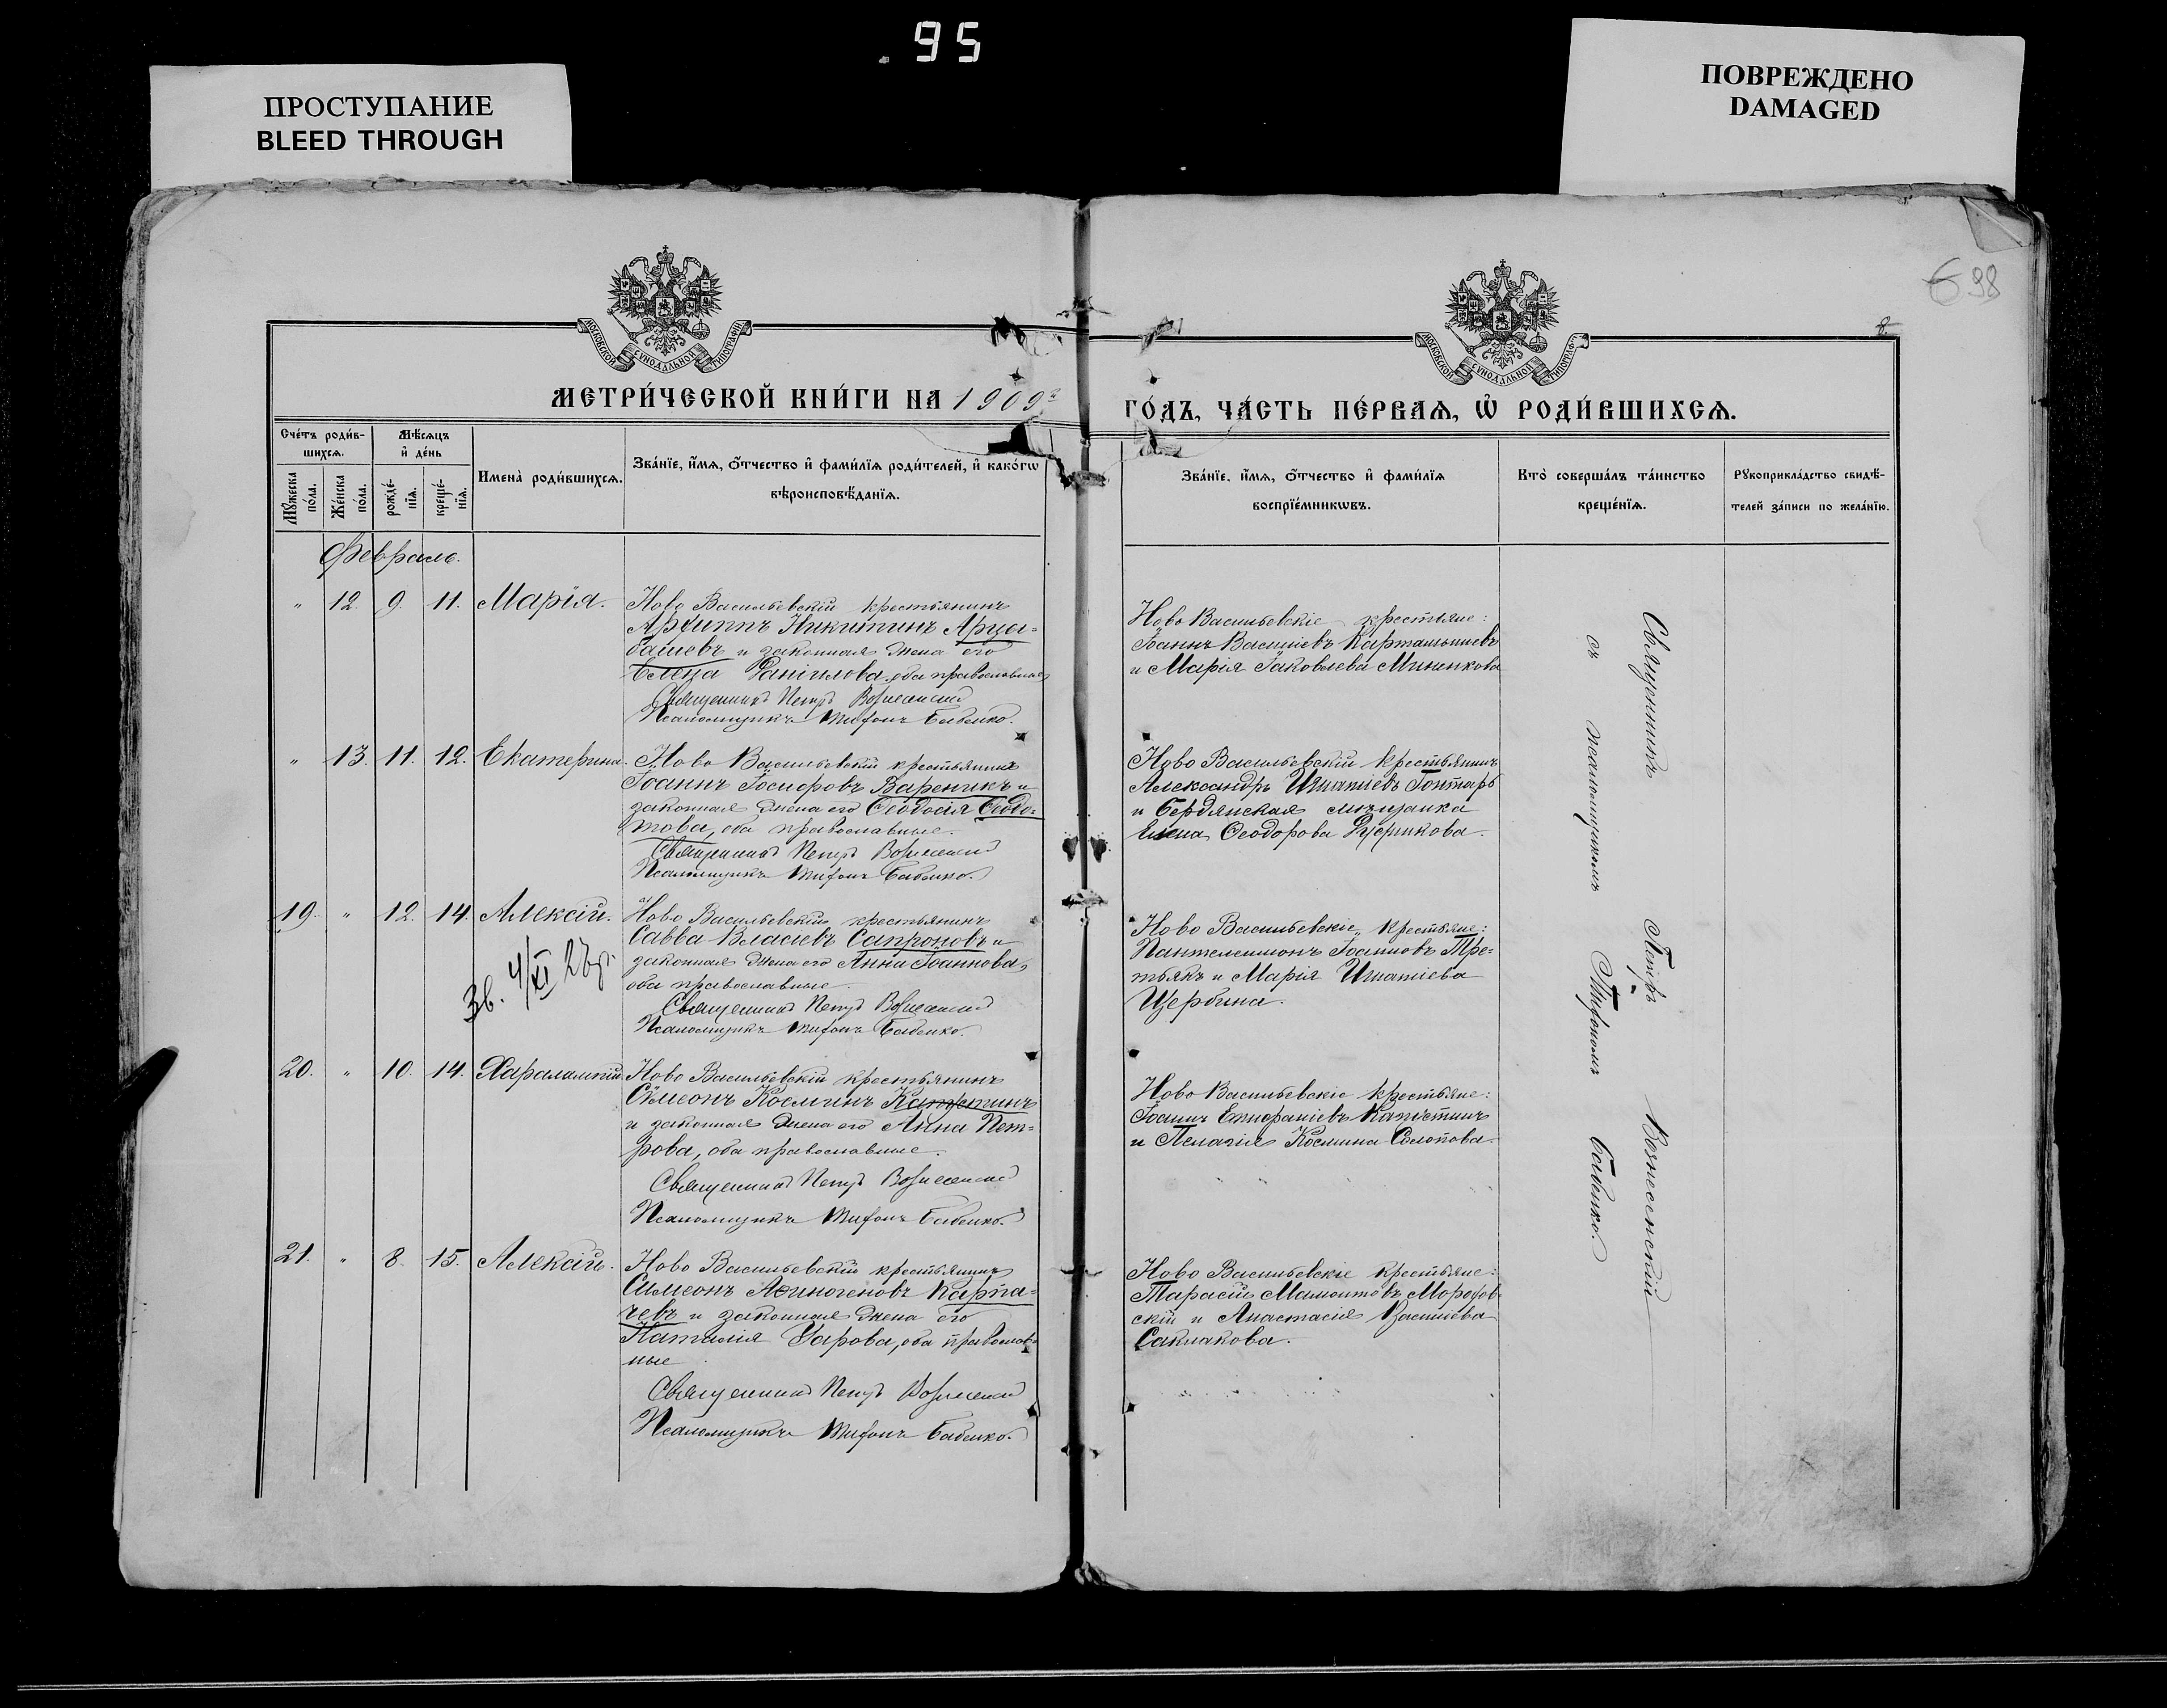 .95
ПРОСТУПАНИЕ
BLEED THROUGH
ПОВРЕЖДЕНО
DAMAGED
98
МОСКОВСКОЙ СѴНОДАЛЬНОЙ ТИПОГРАФІИ
МОСКОВСКОЙ СѴНОДАЛЬНОЙ ТИПОГРАФІИ
МЕТРИ́ЧЕСКОЙ КНИ́ГИ НА 1909
ГО́ДЪ, ЧА́СТЬ ПЕ́РВАѦ, Ѡ҆ РОДИ́ВШИХСѦ.
Сче́тъ роди́в-
шихсѧ.
Мꙋ́жеска по́ла.
Же́нска по́ла.
Мѣ́сѧцъ
и҆ де́нь
рожде́-
нїѧ.
креще́-
нїѧ.
Имена̀ роди́вшихсѧ.
Зва́нїе, и҆́мѧ, ѻ҆́тчество и҆ фами́лїѧ роди́телей, и҆ како́гѡ
вѣроисповѣ́данїѧ.
Зва́нїе, и҆́мѧ, ѻ҆́тчество и҆ фами́лїѧ
воспрїе́мникѡвъ.
Кто̀ соверша́лъ та́инство
креще́нїѧ.
Рꙋкоприкла́дство свидѣ́-
телей за́писи по жела́нїю.
Февраль.
" 12. 9. 11. Марія.
Ново Васильевскій крестьянинъ
Архиппъ Никитинъ Арцы-
башевъ и законная жена его
Елена Даніилова, оба православные
Священникъ Петръ Вознесенский
Псаломщикъ Тифонъ Бабенко.
Ново Васильевскіе крестьяне:
Іоаннъ Васильевъ Карташышевъ
и Марія Іаковлева Миненкова
" 13. 11. 12. Екатерина.
Ново Васильевскій крестьянинъ
Іоаннъ Іосифовъ Вареникъ и
законная жена его Ѳеодосія Ѳедо-
това, оба православные.
Священникъ Петръ Вознесенский
Псаломщикъ Тифонъ Бабенко.
Ново Васильевскій крестьянинъ
Александръ Игнатіевъ Гонтарь
и Бердянская мѣщанка
Елена Ѳеодорова
19. " 12. 14. Алексій.
Зв. 4/XI 27 г.
Ново Васильевскій крестьянинъ
Савва Власіевъ Сапроновъ и
законная жена его Анна Іоаннова,
оба православные.
Священникъ Петръ Вознесенский
Псаломщикъ Тифонъ Бабенко.
Ново Васильевскіе крестьяне:
Пантелеимонъ Іоанновъ Тре-
тьякъ и Марія Игнатіева
Щербина.
20. " 10. 14. Харалампій.
Ново Васильевскій крестьянинъ
Симеонъ Косминъ
и законная жена его Анна Пет-
рова, оба православные.
Священникъ Петръ Вознесенский
Псаломщикъ Тифонъ Бабенко.
Ново Васильевскіе крестьяне:
Іоаннъ Епифаніевъ Капустинъ
и Пелагія Космина Солопова.
21. " 8. 15. Алексій.
Ново Васильевскій крестьянинъ
Симеонъ Аѳиногеновъ Карпа-
чевъ и законная жена его
Наталія Уарова, оба православ-
ные.
Священникъ Петръ Вознесенский
Псаломщикъ Тифонъ Бабенко.
Ново Васильевскіе крестьяне:
Тарасій Мамонтовъ Морозов-
скій и Анастасія Васильева
Саклакова.
Священникъ Петръ Вознесенскій
съ псаломщикомъ Тифономъ Бабенко.